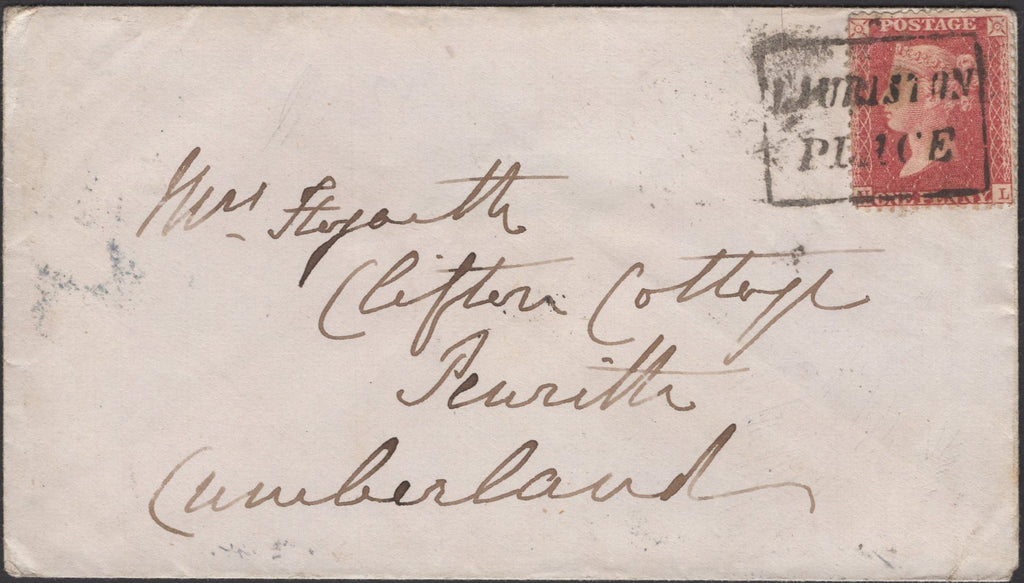 POSTAGE
LAURISTON
PLACE
ONE PENNY L
Mrs Hogarth
Clifton Cottage
Penrith
Cumberland